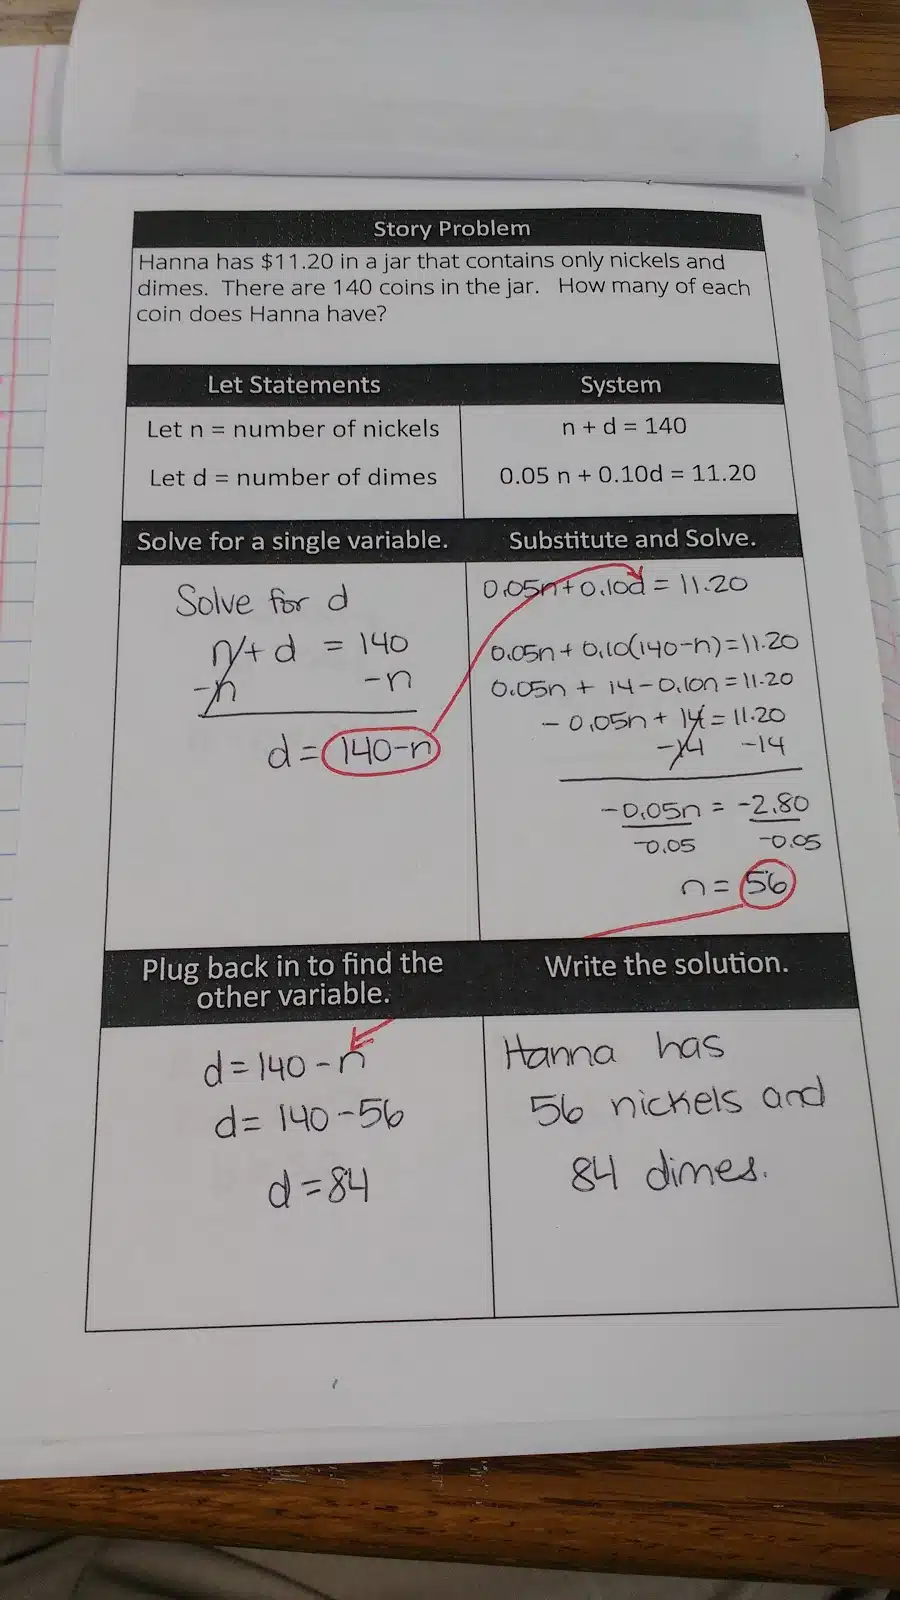 Story Problem
Hanna has $11.20 in a jar that contains only nickels and
dimes. There are 140 coins in the jar. How many of each
coin does Hanna have?
Let Statements
Let n = number of nickels
Let d = number of dimes
System
n + d = 140
0.05 n + 0.10d = 11.20
Solve for a single variable.
Solve for d
n + d = 140
-n -n
d = 140-n
Substitute and Solve.
0.05n + 0.10d = 11.20
0.05n + 0.10(140-n) = 11.20
0.05n + 14 - 0.10n = 11.20
- 0.05n + 14 = 11.20
-14 -14
-0.05n = -2.80
-0.05 -0.05
n = 56
Plug back in to find the
other variable.
d = 140 - n
d = 140 - 56
d = 84
Write the solution.
Hanna has
56 nickels and
84 dimes.